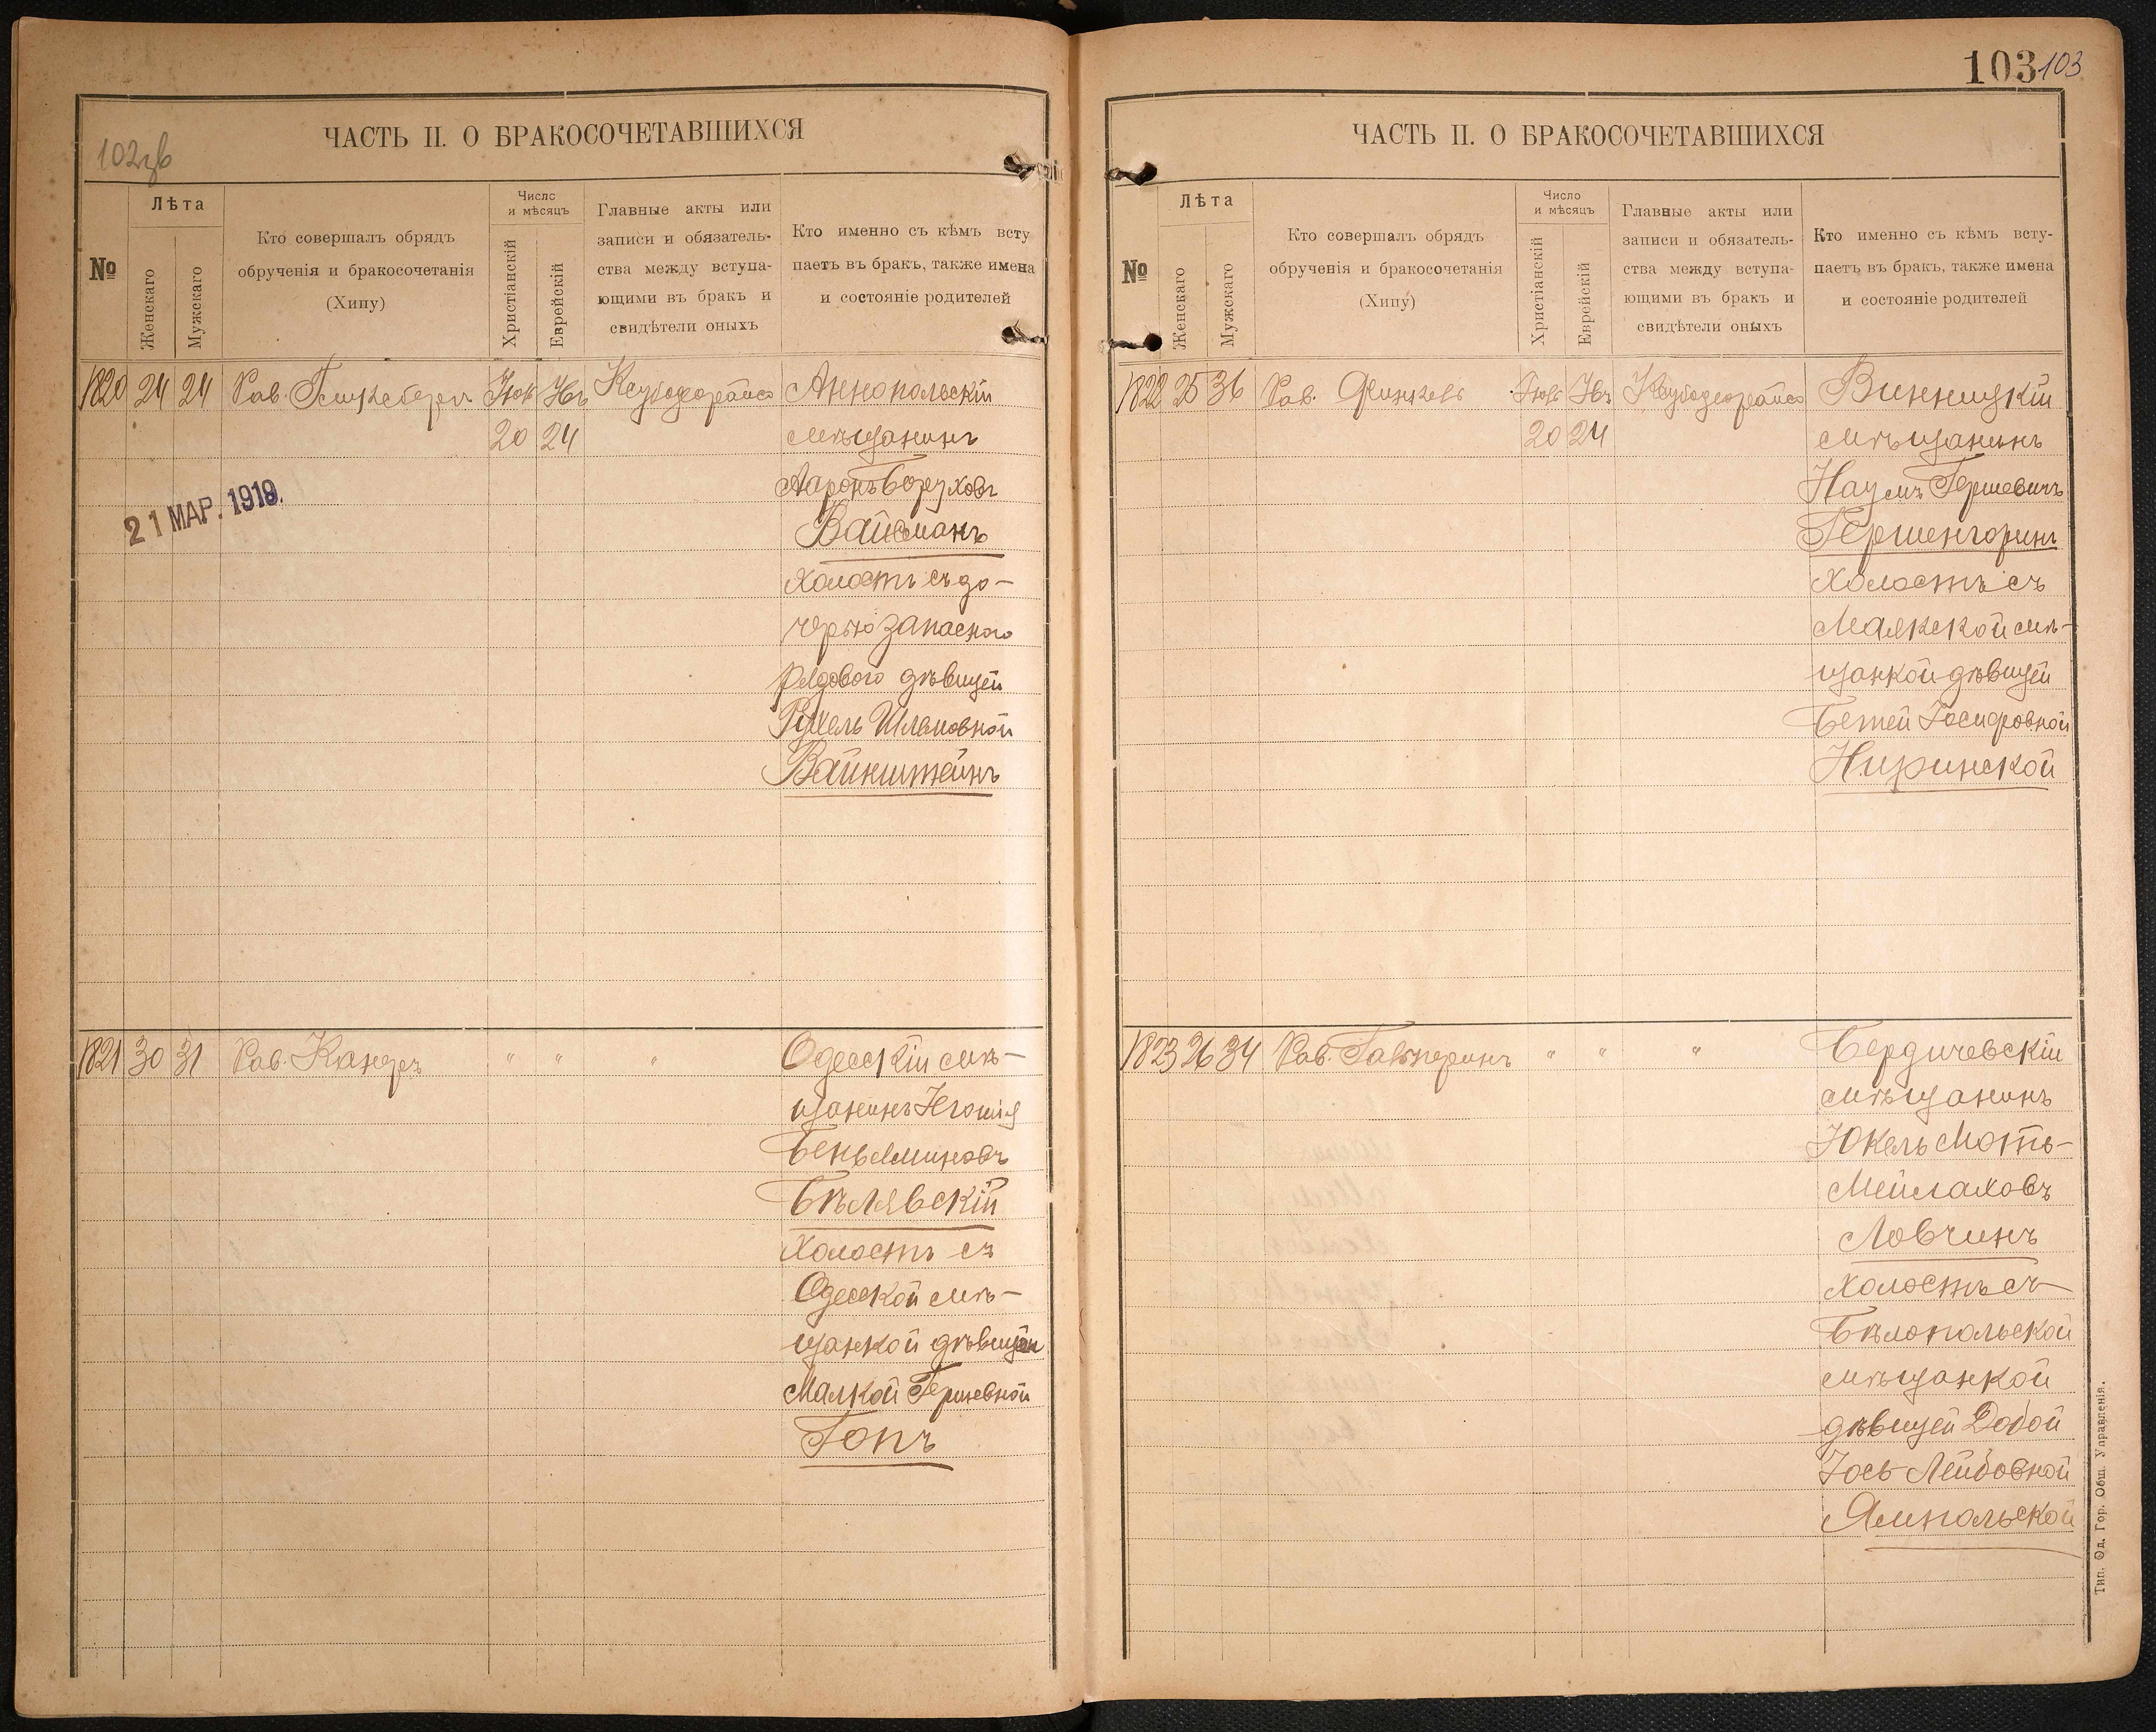 102зв
ЧАСТЬ II. О БРАКОСОЧЕТАВШИХСЯ
№
Лѣта
Женскаго
Мужскаго
Кто совершалъ обрядъ
обрученія и бракосочетанія
(Хипу)
Число
и мѣсяцъ
Христіанскій
Еврейскій
Главные акты или
записи и обязатель-
ства между вступа-
ющими въ бракъ и
свидѣтели оныхъ
Кто именно съ кѣмъ всту
паетъ въ бракъ, также имена
и состояніе родителей
1820 24 24 Рав. Аннопольскій
20 24 мѣщанинъ
Ааронъ Боруховъ
21 МАР. 1919.
Вайсманъ
холостъ съ до-
черью запасного
рядового дѣвицей
Рухель Шлемовной
Вайнштейнъ
1821 30 31 Рав. Канеръ " " " Одесскій мѣ-
щанинъ
Беньяминовъ
Бѣлявскій
холостъ съ
Одесской мѣ-
щанкой дѣвицей
Малкой Гершевной
Гопъ
103 103
ЧАСТЬ II. О БРАКОСОЧЕТАВШИХСЯ
№
Лѣта
Женскаго
Мужскаго
Кто совершалъ обрядъ
обрученія и бракосочетанія
(Хипу)
Число
и мѣсяцъ
Христіанскій
Еврейскій
Главные акты или
записи и обязатель-
ства между вступа-
ющими въ бракъ и
свидѣтели оныхъ
Кто именно съ кѣмъ всту-
паетъ въ бракъ, также имена
и состояніе родителей
1822 25 36 Рав. Винницкій
20 24 мѣщанинъ
Наумъ Гершевичъ
Гершенгоринъ
холостъ съ
Маякской мѣ-
щанкой дѣвицей
Бетей Іосифовной
Ниринской
1823 26 34 Рав. Гальперинъ " " " Бердичевскій
мѣщанинъ
Юкель Моть-
Мейлаховъ
Ловчинъ
холостъ съ
Бѣлопольской
мѣщанкой
дѣвицей Добой
Іось-Лейбовной
Ямпольской
Тип. Од. Гор. Общ. Управленія.